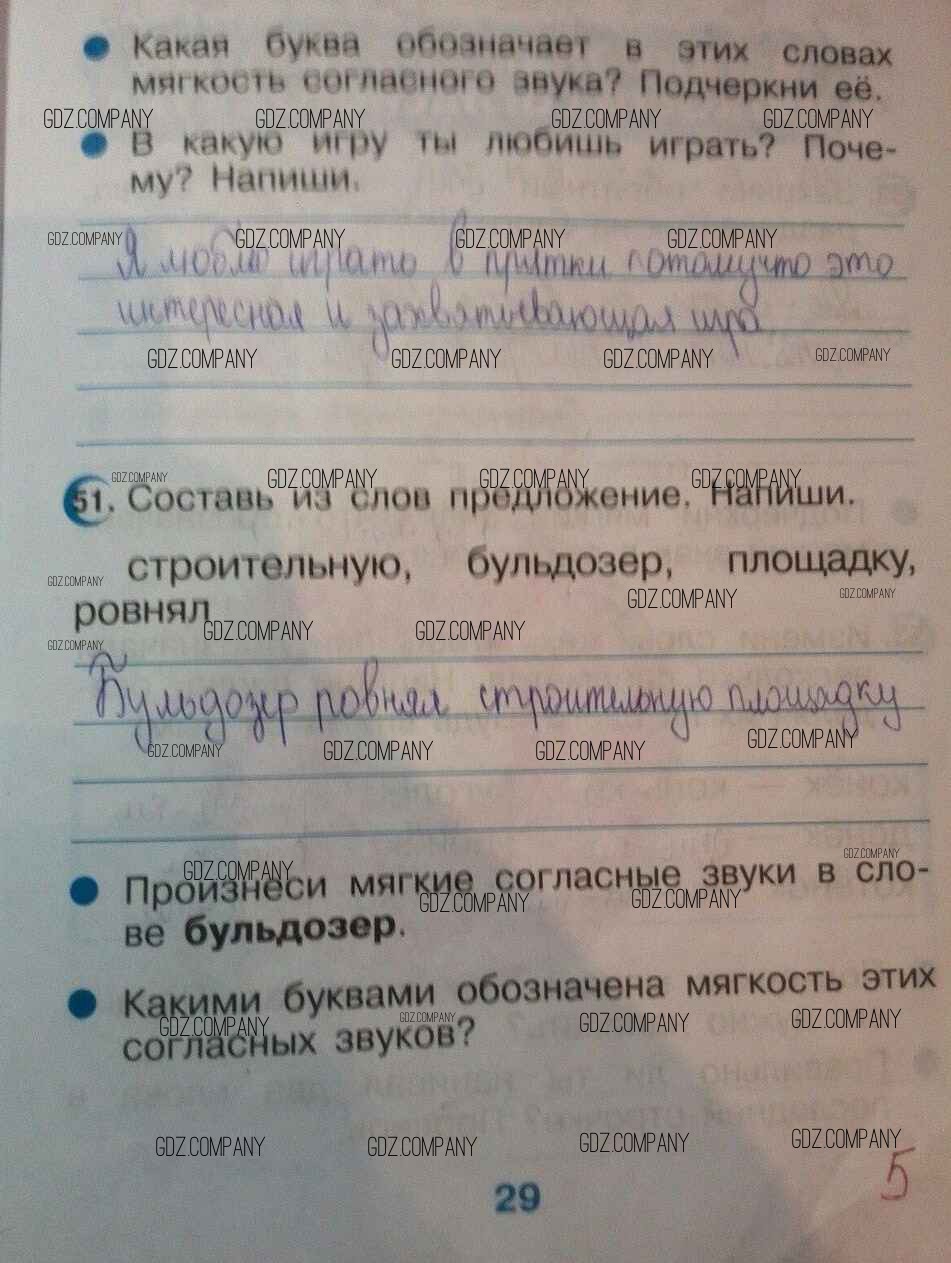 Какая буква обозначает в этих словах
мягкость согласного звука? Подчеркни её.
GDZ.COMPANY GDZ.COMPANY GDZ.COMPANY GDZ.COMPANY
В какую игру ты любишь играть? Поче-
му? Напиши.
GDZ.COMPANY GDZ.COMPANY GDZ.COMPANY GDZ.COMPANY
Я люблю играть в прятки потомучто это
интересная и захватывающая игра
GDZ.COMPANY GDZ.COMPANY GDZ.COMPANY GDZ.COMPANY
GDZ.COMPANY GDZ.COMPANY GDZ.COMPANY GDZ.COMPANY
51. Составь из слов предложение. Напиши.
строительную, бульдозер, площадку,
GDZ.COMPANY GDZ.COMPANY GDZ.COMPANY
ровнял
GDZ.COMPANY GDZ.COMPANY GDZ.COMPANY
Бульдозер ровнял строительную площадку
GDZ.COMPANY GDZ.COMPANY GDZ.COMPANY GDZ.COMPANY
GDZ.COMPANY GDZ.COMPANY
Произнеси мягкие согласные звуки в сло-
GDZ.COMPANY GDZ.COMPANY
ве бульдозер.
Какими буквами обозначена мягкость этих
GDZ.COMPANY GDZ.COMPANY GDZ.COMPANY GDZ.COMPANY
согласных звуков?
GDZ.COMPANY GDZ.COMPANY GDZ.COMPANY GDZ.COMPANY
5
29